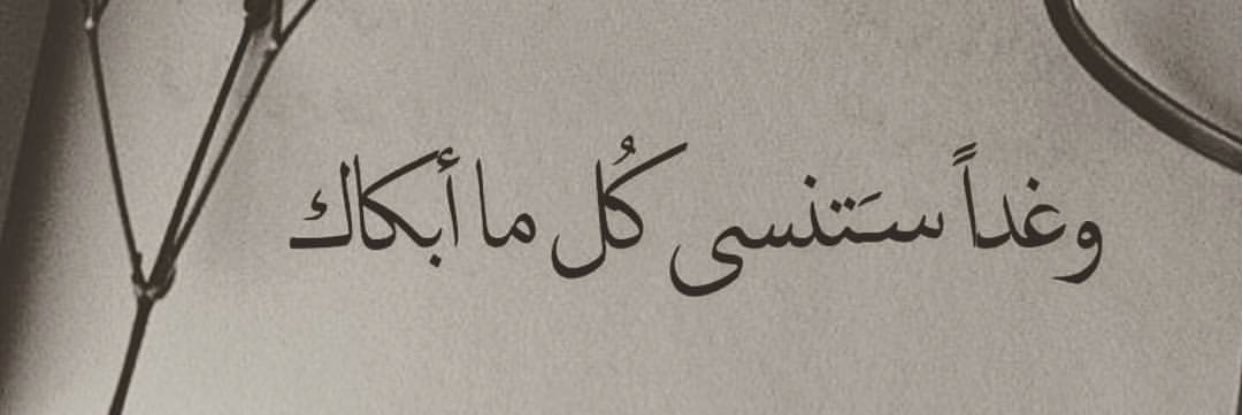 وغداً ستَنسى كُل ما أبكاك